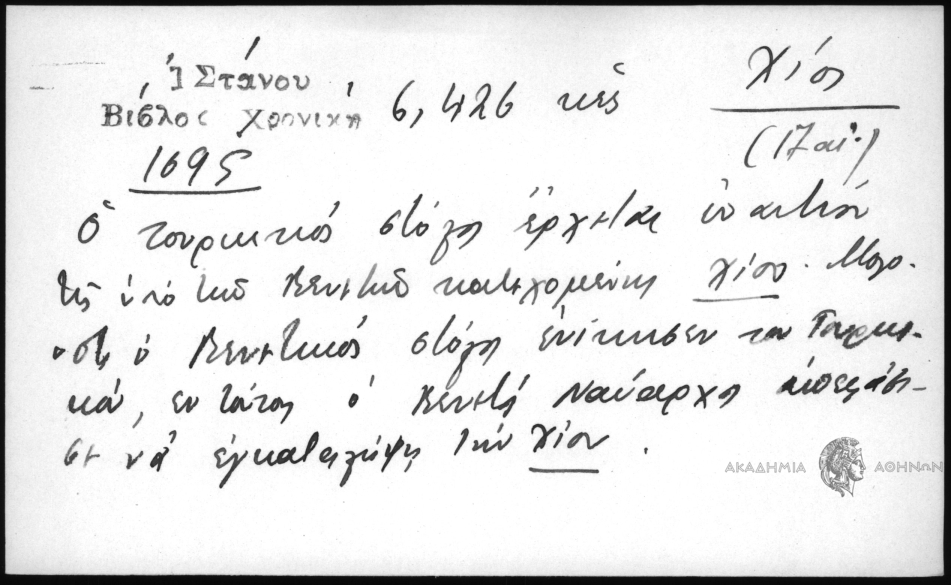 Ἰ Στάνου
Βίβλος χρονική 6, 426 κἑξ Χίος
(17 αἰ.)
1695
Ὁ τουρκικός στόλος ἔρχεται ἐναντίον
τῆς ὑπό τῶν Βενετῶν κατεχομένης Χίου. Μολο-
νότι ὁ Βενετικός στόλος ἐνίκησεν τον Τουρκι-
κόν, ἐν τούτοις ὁ Βενετός Ναύαρχος ἀπεφάσι-
σε νά ἐγκαταλείψη τήν Χίον.
ΑΚΑΔΗΜΙΑ ΑΘΗΝΩΝ